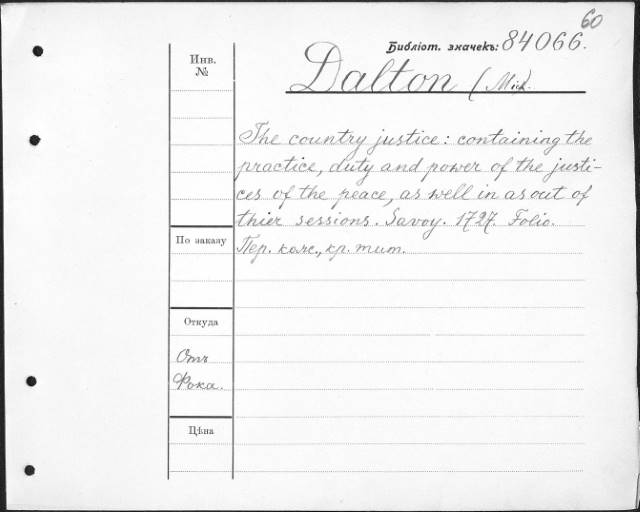 60
Библіот. значекъ: 84066.
Инв.
№
Dalton (Mich).
The country justice: containing the
practice, duty and power of the justi-
ces of the peace, as well in as out of
thier sessions. Savoy. 1727. Folio.
По заказу
Пер. кожс., кр. тит.
Откуда
Отъ
Фока.
Цѣна